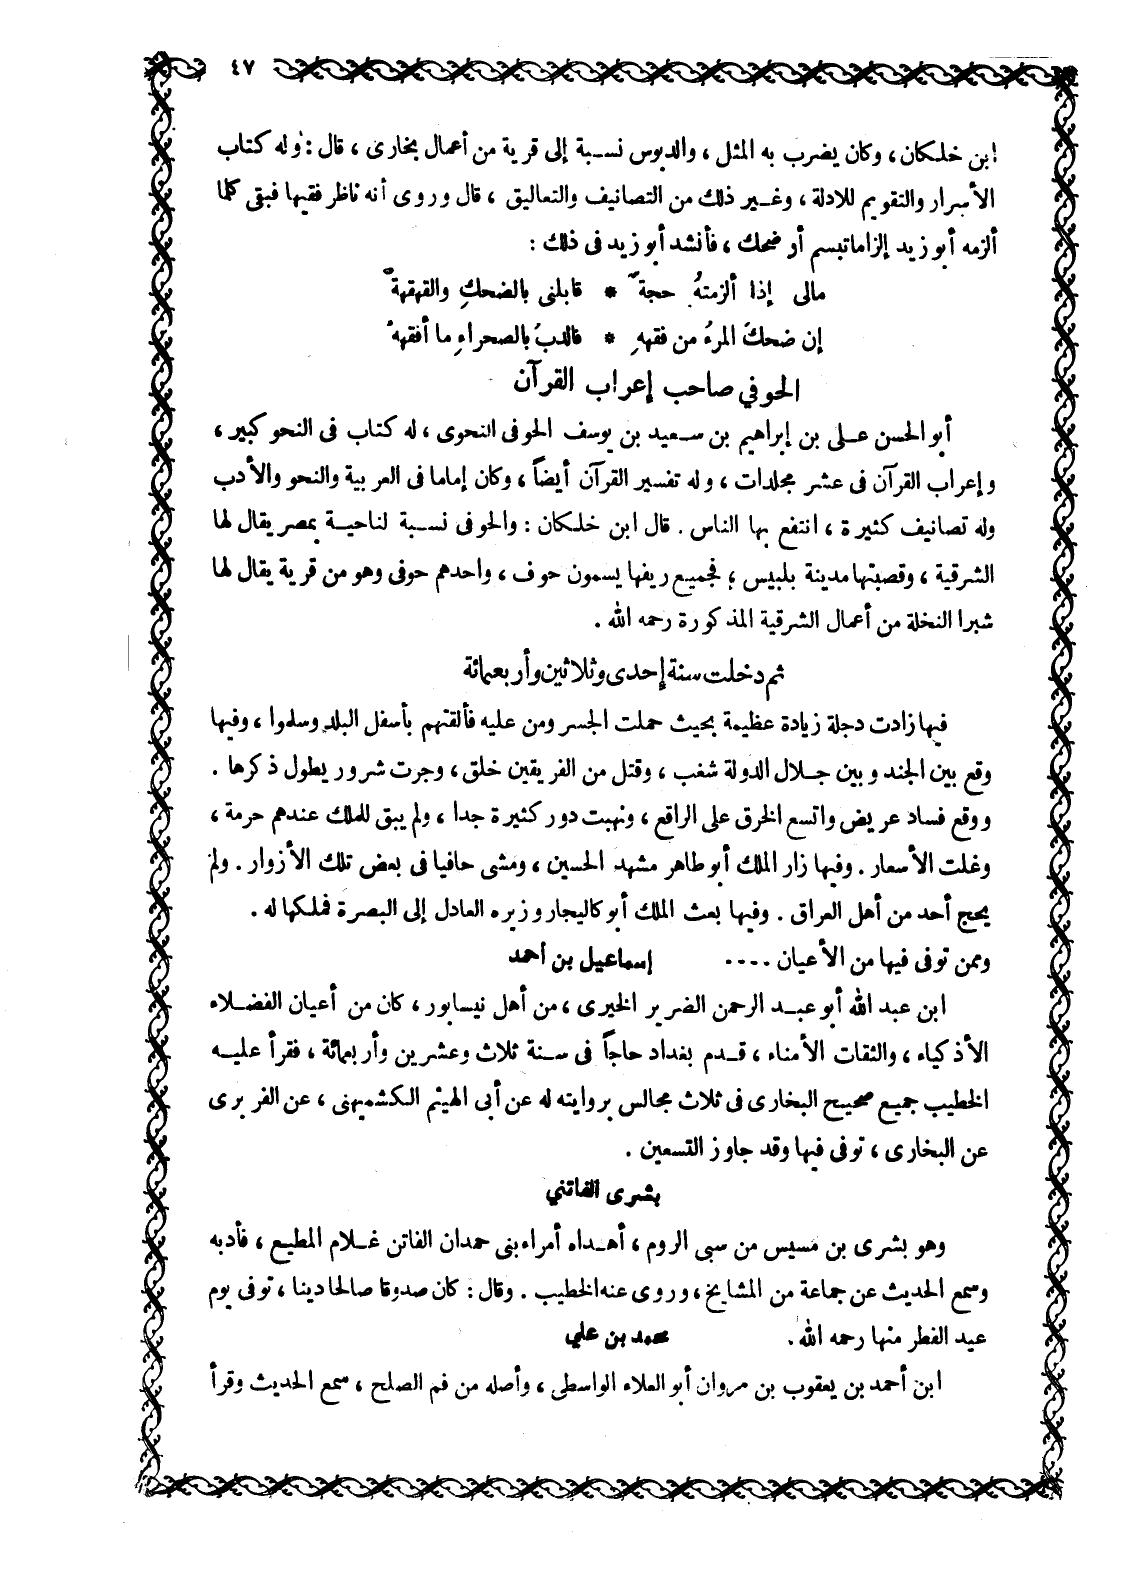 ٤٧
ابن خلكان، وكان يضرب به المثل، والدبوس نسبة إلى قرية من أعمال بخارى، قال: وله كتاب
الأسرار والتقويم للادلة، وغير ذلك من التصانيف والتعاليق، قال وروى أنه ناظر فقيها فبقى كلما
ألزمه أبو زيد إلزاما تبسم أو ضحك، فأنشد أبو زيد فى ذلك:
مالى إذا ألزمتهُ حجةً * قابلنى بالضحكِ والقهقهةْ
إن ضحكَ المرءُ من فقههِ * فالدبُ بالصحراءِ ما أفقههُ
الحوفي صاحب إعراب القرآن
أبو الحسن على بن إبراهيم بن سعيد بن يوسف الحوفى النحوى، له كتاب فى النحو كبير،
وإعراب القرآن فى عشر مجلدات، وله تفسير القرآن أيضاً، وكان إماما فى العربية والنحو والأدب
وله تصانيف كثيرة، انتفع بها الناس. قال ابن خلكان: والحوفى نسبة لناحية بمصر يقال لها
الشرقية، وقصبتها مدينة بلبيس؛ فجميع ريفها يسمون حوف، واحدهم حوفى وهو من قرية يقال لها
شبرا النخلة من أعمال الشرقية المذكورة رحمه الله.
ثم دخلت سنة إحدى وثلاثين وأربعمائة
فيها زادت دجلة زيادة عظيمة بحيث حملت الجسر ومن عليه فألقتهم بأسفل البلد وسلموا، وفيها
وقع بين الجند وبين جلال الدولة شغب، وقتل من الفريقين خلق، وجرت شرور يطول ذكرها.
ووقع فساد عريض واتسع الخرق على الراقع، ونهبت دور كثيرة جدا، ولم يبق للملك عندهم حرمة،
وغلت الأسعار. وفيها زار الملك أبو طاهر مشهد الحسين، ومشى حافيا فى بعض تلك الأزوار. ولم
يحج أحد من أهل العراق. وفيها بعث الملك أبو كاليجار وزيره العادل إلى البصرة فملكها له.
وممن توفى فيها من الأعيان .... إسماعيل بن أحمد
ابن عبد الله أبو عبد الرحمن الضرير الخيرى، من أهل نيسابور، كان من أعيان الفضلاء
الأذكياء، والثقات الأمناء، قدم بغداد حاجاً فى سنة ثلاث وعشرين وأربعمائة، فقرأ عليه
الخطيب جميع صحيح البخارى فى ثلاث مجالس بروايته له عن أبى الهيثم الكشميهنى، عن الفربرى
عن البخارى، توفى فيها وقد جاوز التسعين.
بشرى الفاتني
وهو بشرى بن مسيس من سبى الروم، أهداه أمراء بنى حمدان الفاتن غلام المطيع، فأدبه
وسمع الحديث عن جماعة من المشايخ، وروى عنه الخطيب. وقال: كان صدوقا صالحا دينا، توفى يوم
عيد الفطر منها رحمه الله. محمد بن علي
ابن أحمد بن يعقوب بن مروان أبو العلاء الواسطى، وأصله من فم الصلح، سمع الحديث وقرأ